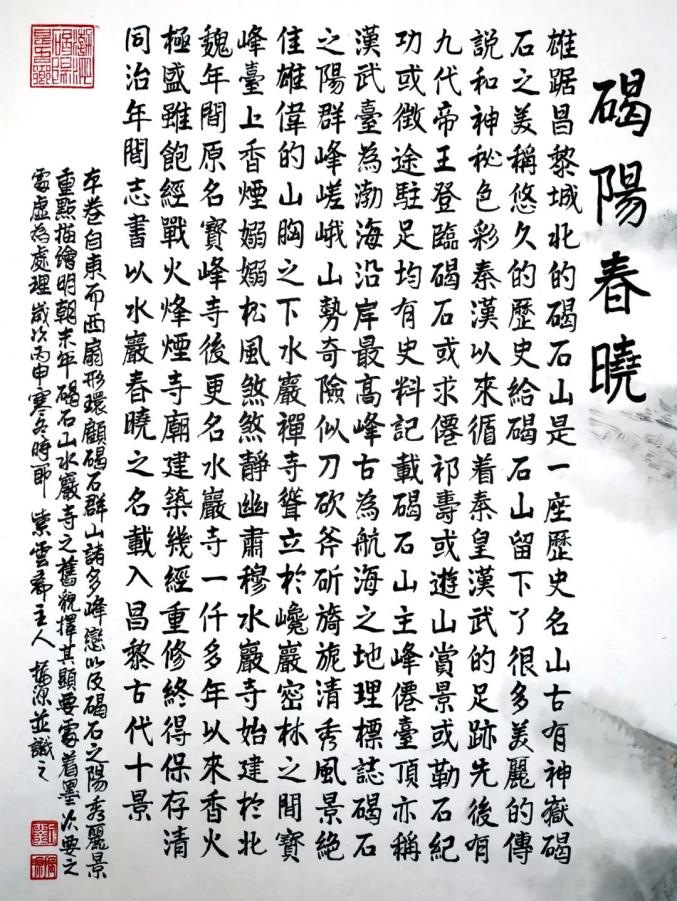 碣陽春曉
雄踞昌黎城北的碣石山是一座歷史名山古有神嶽碣
石之美稱悠久的歷史給碣石山留下了很多美麗的傳
説和神秘色彩秦漢以來循着秦皇漢武的足跡先後有
九代帝王登臨碣石或求僊祁壽或遊山賞景或勒石紀
功或徵途駐足均有史料記載碣石山主峰僊臺頂亦稱
漢武臺為渤海沿岸最高峰古為航海之地理標誌碣石
之陽群峰嵯峨山勢奇險似刀砍斧斫旖旎清秀風景絶
佳雄偉的山胸之下水巖禪寺聳立於巉巖密林之間寶
峰臺上香煙嫋嫋松風煞煞静幽肅穆水巖寺始建於北
魏年間原名寶峰寺後更名水巖寺一仟多年以來香火
極盛雖飽經戰火烽煙寺廟建築幾經重修終得保存清
同治年間志書以水巖春曉之名載入昌黎古代十景
本卷自東而西扇形環顧碣石群山諸多峰巒以及碣石之陽秀麗景
重點描繪明朝末年碣石山水巖寺之舊貌擇其顯要處着墨次要之
處虛為處理歲次丙申寒冬時節 紫雲齋主人 並識之